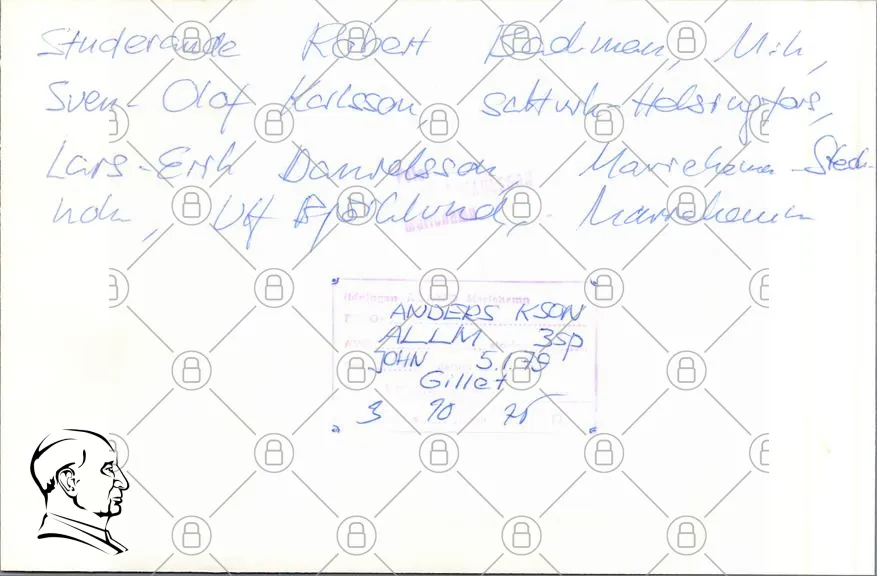 Studerande Robert Backman, M:hn,
Sven-Olof Karlsson, Helsingfors,
Lars-Erik Danielsson, Mariehamn-Stock-
holm, Ulf Björklund, Mariehamn
ANDERS KSON
ALLM 3sp
JOHN 5.1.79
Gillet
3 90 75